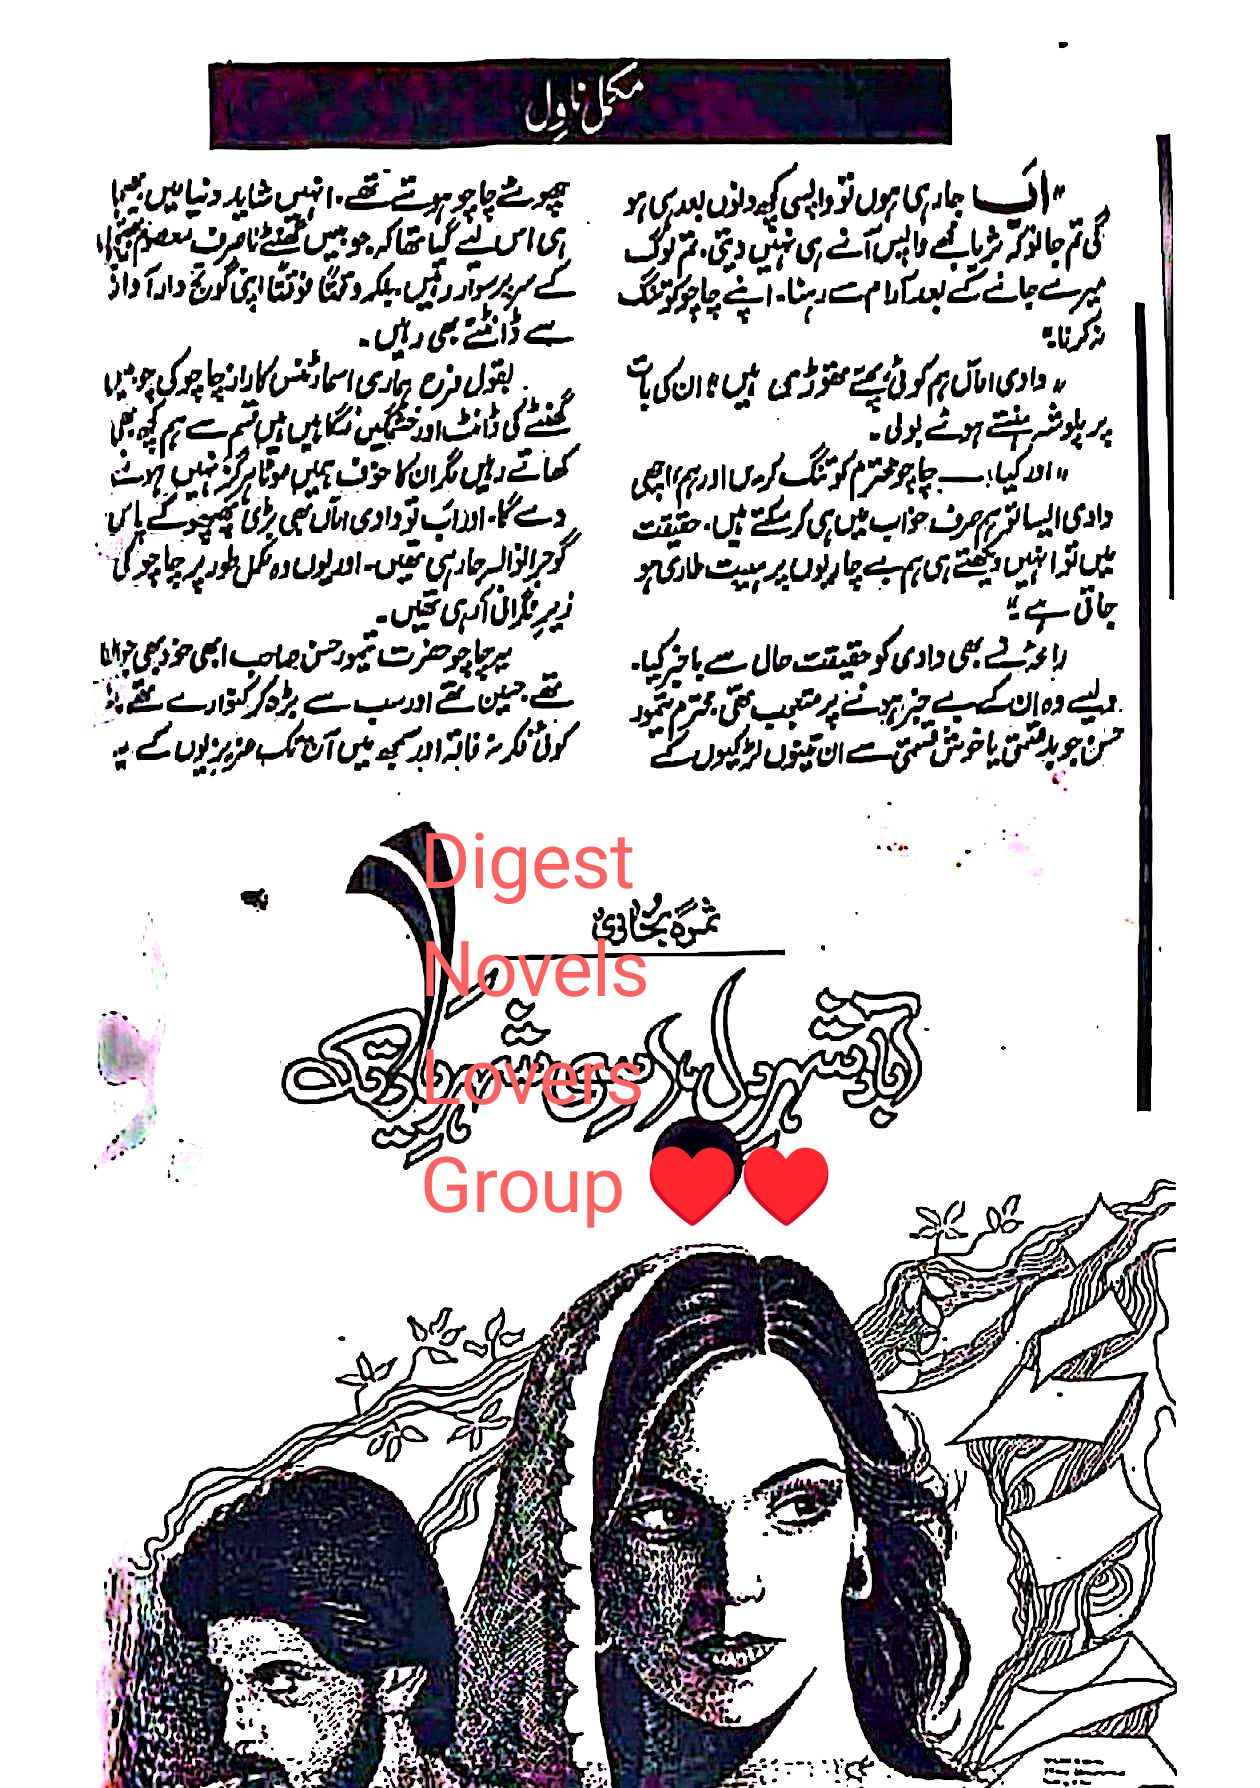 مکمل ناول
"اب جارہی ہوں تو واپسی کچھ دنوں بعد ہی ہو
گی تم جانو کہ ثریا مجھے واپس آنے ہی نہیں دیتی۔ تم لوگ
میرے جانے کے بعد آرام سے رہنا۔ اپنے چاچو کو تنگ
نہ کرنا۔"
"دادی اماں ہم کوئی بچے تھوڑی ہیں" ان کی بات
پر پلوشہ ہنستے ہوئے بولی۔
"اور کیا! — چاچو محترم کو تنگ کریں اور ہم" اچھی
دادی ایسا تو ہم صرف خواب میں ہی کر سکتے ہیں۔ حقیقت
میں تو انہیں دیکھتے ہی ہم بے چاریوں پر ہیبت طاری ہو
جاتی ہے"
رابحہ نے بھی دادی کو حقیقت حال سے باخبر کیا۔
ویسے وہ ان کے بے خبر ہونے پر متعجب تھی۔ محترم تیمور
حسن جو بدقسمتی یا خوش قسمتی سے ان تینوں لڑکیوں کے
چھوٹے چاچو ہوتے تھے۔ انہیں شاید دنیا میں بھیجا
ہی اس لیے گیا تھا کہ جو بیس گھنٹے نا صرف معصوم
کے سر پر سوار رہیں۔ بلکہ وقتاً فوقتاً اپنی گونج دار آواز
سے ڈانٹتے بھی رہیں۔
بقول فرح ہماری اسمارٹنس کا راز چاچو کی چوبیس
گھنٹے کی ڈانٹ اور خشمگیں نگاہیں ہیں قسم سے ہم کچھ بھی
کھاتے رہیں مگر ان کا خوف ہمیں موٹا ہرگز نہیں ہونے
دے گا۔ اور اب تو دادی اماں بھی بڑی پھپھو کے پاس
گوجرانوالہ جارہی تھیں۔ اور یوں وہ مکمل طور پر چاچو کی
زیر نگرانی آرہی تھیں۔
یہ چاچو حضرت تیمور حسن صاحب ابھی خود بھی جوان
تھے۔ حسین تھے اور سب سے بڑھ کر کنوارے تھے
کوئی فکر نہ فاقہ اور سمجھ میں آن تک عزیزیوں کے یہ
ثمرہ بخاری
آباد شہر دل ہے اسی شہریار تک
Digest
Novels
Lovers
Group ♥️♥️